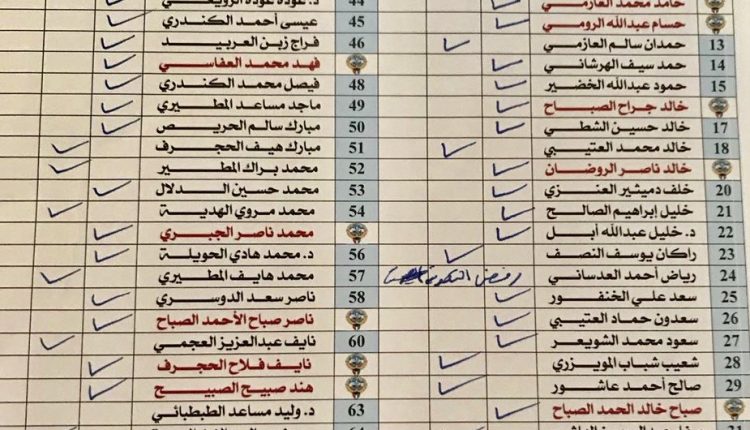 حامد محمد العازمي
حسام عبدالله الرومي
13 حمدان سالم العازمي
14 حمد سيف الهرشاني
15 حمود عبدالله الخضير
خالد جراح الصباح
17 خالد حسين الشطي
18 خالد محمد العتيبي
خالد ناصر الروضان
20 خلف دميثير العنزي
21 خليل إبراهيم الصالح
22 د. خليل عبدالله أبل
23 راكان يوسف النصف
24 رياض أحمد العدساني رفض
25 سعد علي الخنفور
26 سعدون حماد العتيبي
27 سعود محمد الشويعر
28 شعيب شباب المويزري
29 صالح أحمد عاشور
صباح خالد الحمد الصباح
31
44 د. عودة عودة الرويعي
45 عيسى أحمد الكندري
46 فراج زبن العربيد
فهد محمد العفاسي
48 فيصل محمد الكندري
49 ماجد مساعد المطيري
50 مبارك سالم الحريص
51 مبارك هيف الحجرف
52 محمد براك المطير
53 محمد حسين الدلال
54 محمد مروي الهدية
محمد ناصر الجبري
56 د. محمد هادي الحويلة
57 محمد هايف المطيري
58 ناصر سعد الدوسري
ناصر صباح الأحمد الصباح
60 نايف عبدالعزيز العجمي
نايف فلاح الحجرف
هند صبيح الصبيح
63 د. وليد مساعد الطبطبائي
64